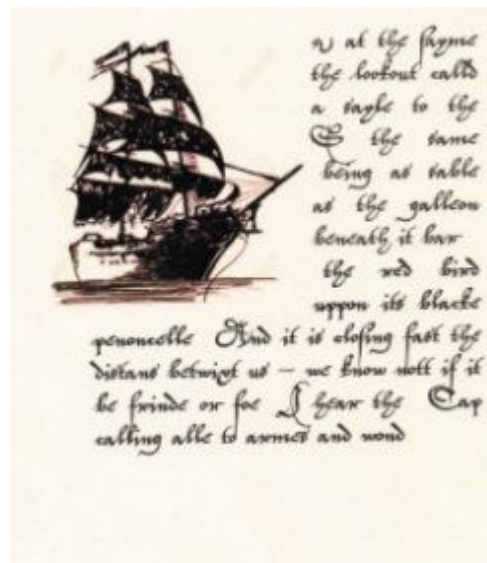 at the sayme
the lookout calld
a sayle to the
S the same
being as sable
as the galleon
beneath it bar
the red bird
uppon its blacke
penoncelle And it is closing fast the
distans betwixt us – we know nott if it
be frinde or foe I hear the Cap
calling alle to armes and wond